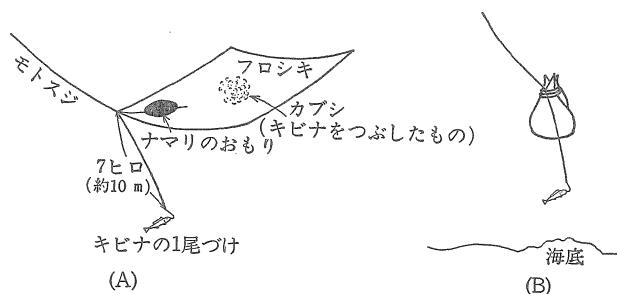 モトスジ
フロシキ
カブシ
(キビナをつぶしたもの)
ナマリのおもり
7ヒロ
(約10 m)
キビナの1尾づけ
(A)
海底
(B)